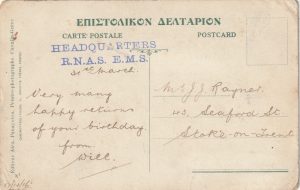 ΕΠΙΣΤΟΛΙΚΟΝ ΔΕΛΤΑΡΙΟΝ
CARTE POSTALE
POSTCARD
HEADQUARTERS
R.N.A.S. E.M.S.
March.
Very many
happy returns
of your birthday.
from
Will.
J. Rayner.
43, Seaford St.
Stoke-on-Trent